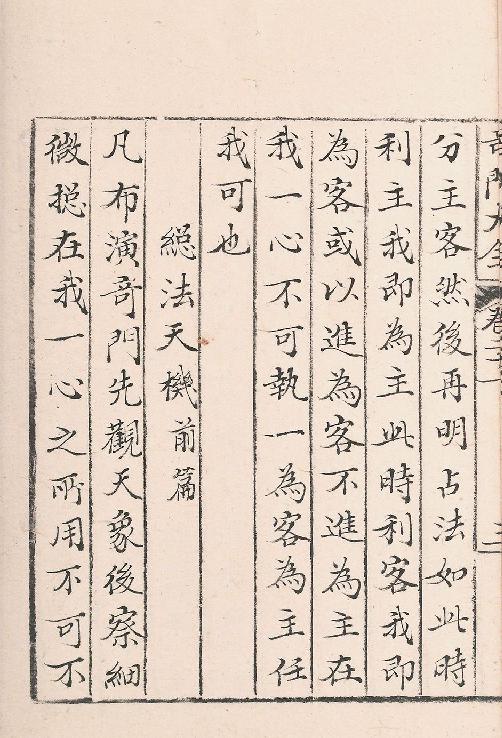 奇門大全 卷三
分主客然後再明占法如此時
利主我即為主此時利客我即
為客或以進為客不進為主在
我一心不可執一為客為主任
我可也
総法天機前篇
凡布演竒門先觀天象後察細
微摠在我一心之所用不可不